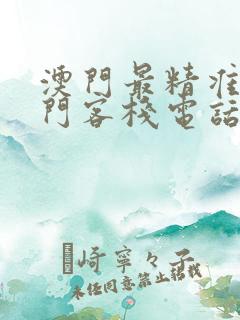 澳門最精准
門客棧電話
崎寧々子
未任同意禁止转载